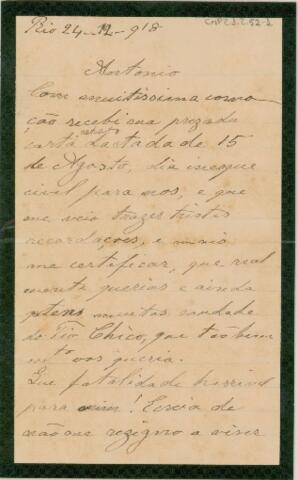 Rio 24-12-918
Antonio
Com muitissima commo-
ção recebi sua prezada
carta datada de 15
de Agosto, dia
civil para nos, e que
me veio trazer tristes
recordações, e mais
me certificar, que real
mente querias e ainda
tens muitas saudade
do Tio Chico, que tão bem
vos queria.
Que fatalidade horrivel
para mim! de
não me rezigno a viver